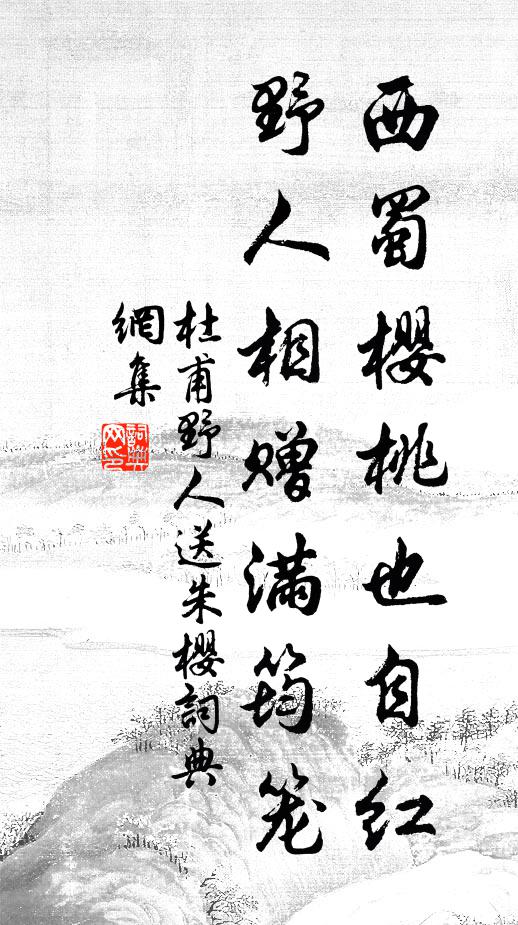 西蜀櫻桃也自红
野人相赠满筠笼
杜甫野人送朱櫻詞典
網集